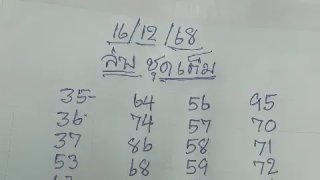 16/12/68
ลับ ชุดเต็ม
35- 64 56 95
36 74 57 70
37 86 58 71
53 68 59 72